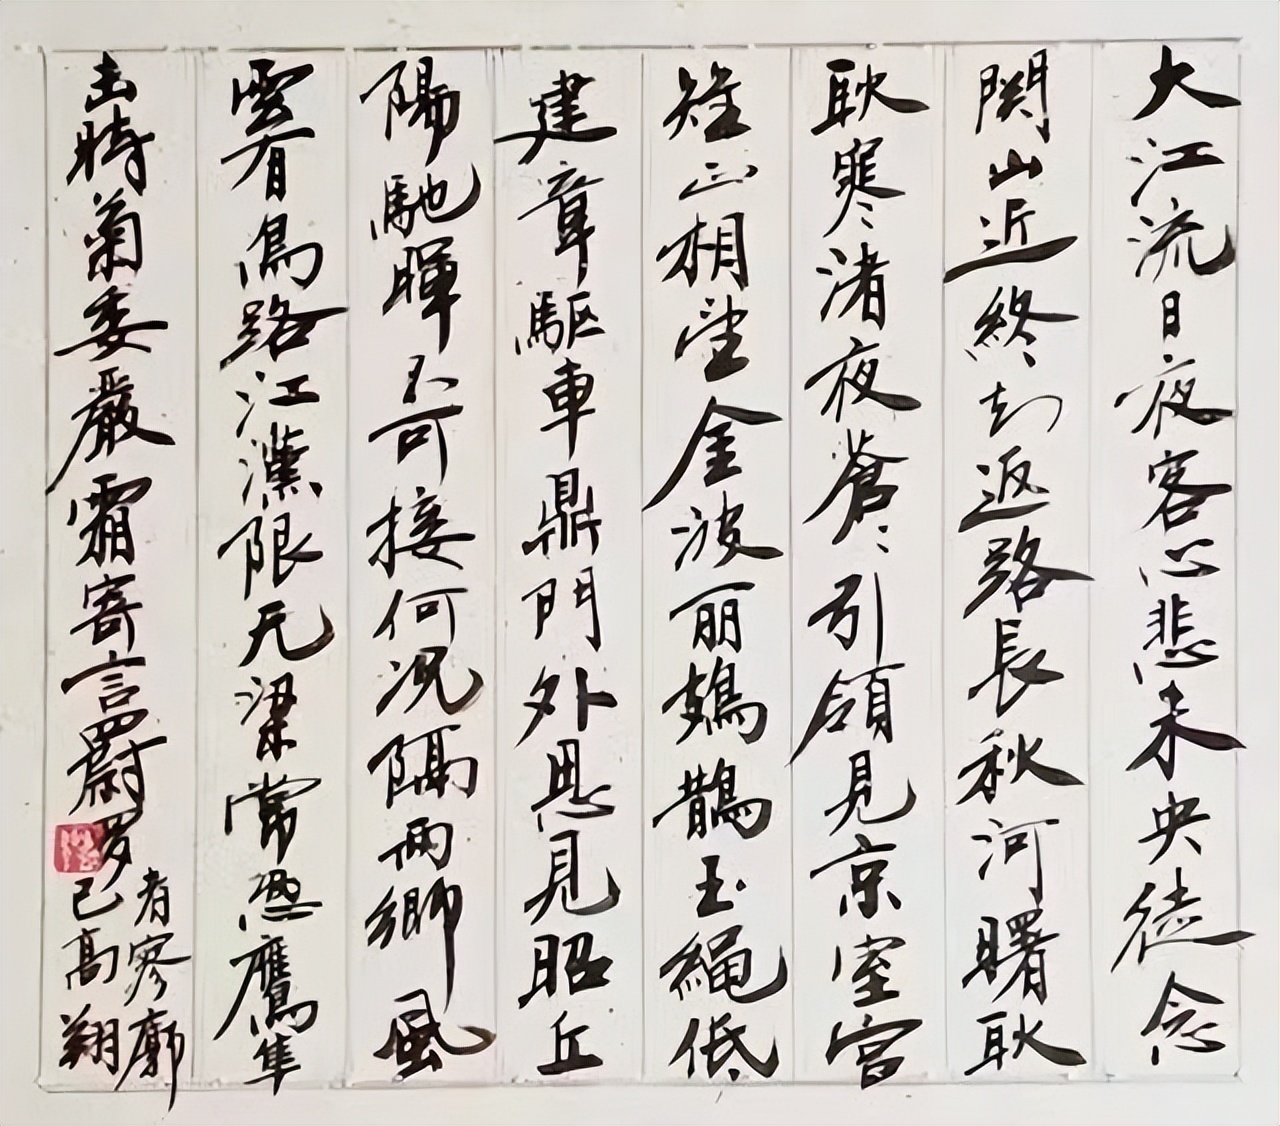 大江流日夜客心悲未央徒念
関山近終知返路長秋河曙耿
耿寒渚夜蒼〻引領見京室宫
雉正相望金波丽鳷鵲玉繩低
建章駆車鼎門外思見昭丘
陽馳暉不可接何况隔兩鄉風
雲有鳥路江漢限无梁常恐鷹隼
击時菊委嚴霜寄言罻罗
者寥廓
已高翔